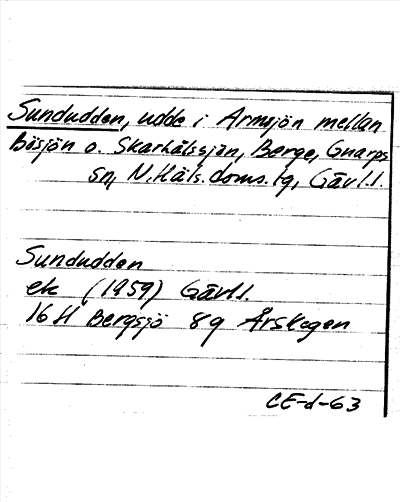 Sundudden, udde i Armsjön mellan
Bösjön o. Skarhålssjön, Berge, Gnarps
sn, N. Häls. doms. tg, Gävl.l.
Sundudden
ek (1959) Gävl l.
16 H Bergsjö 8 g Årskogen
CE-d-63